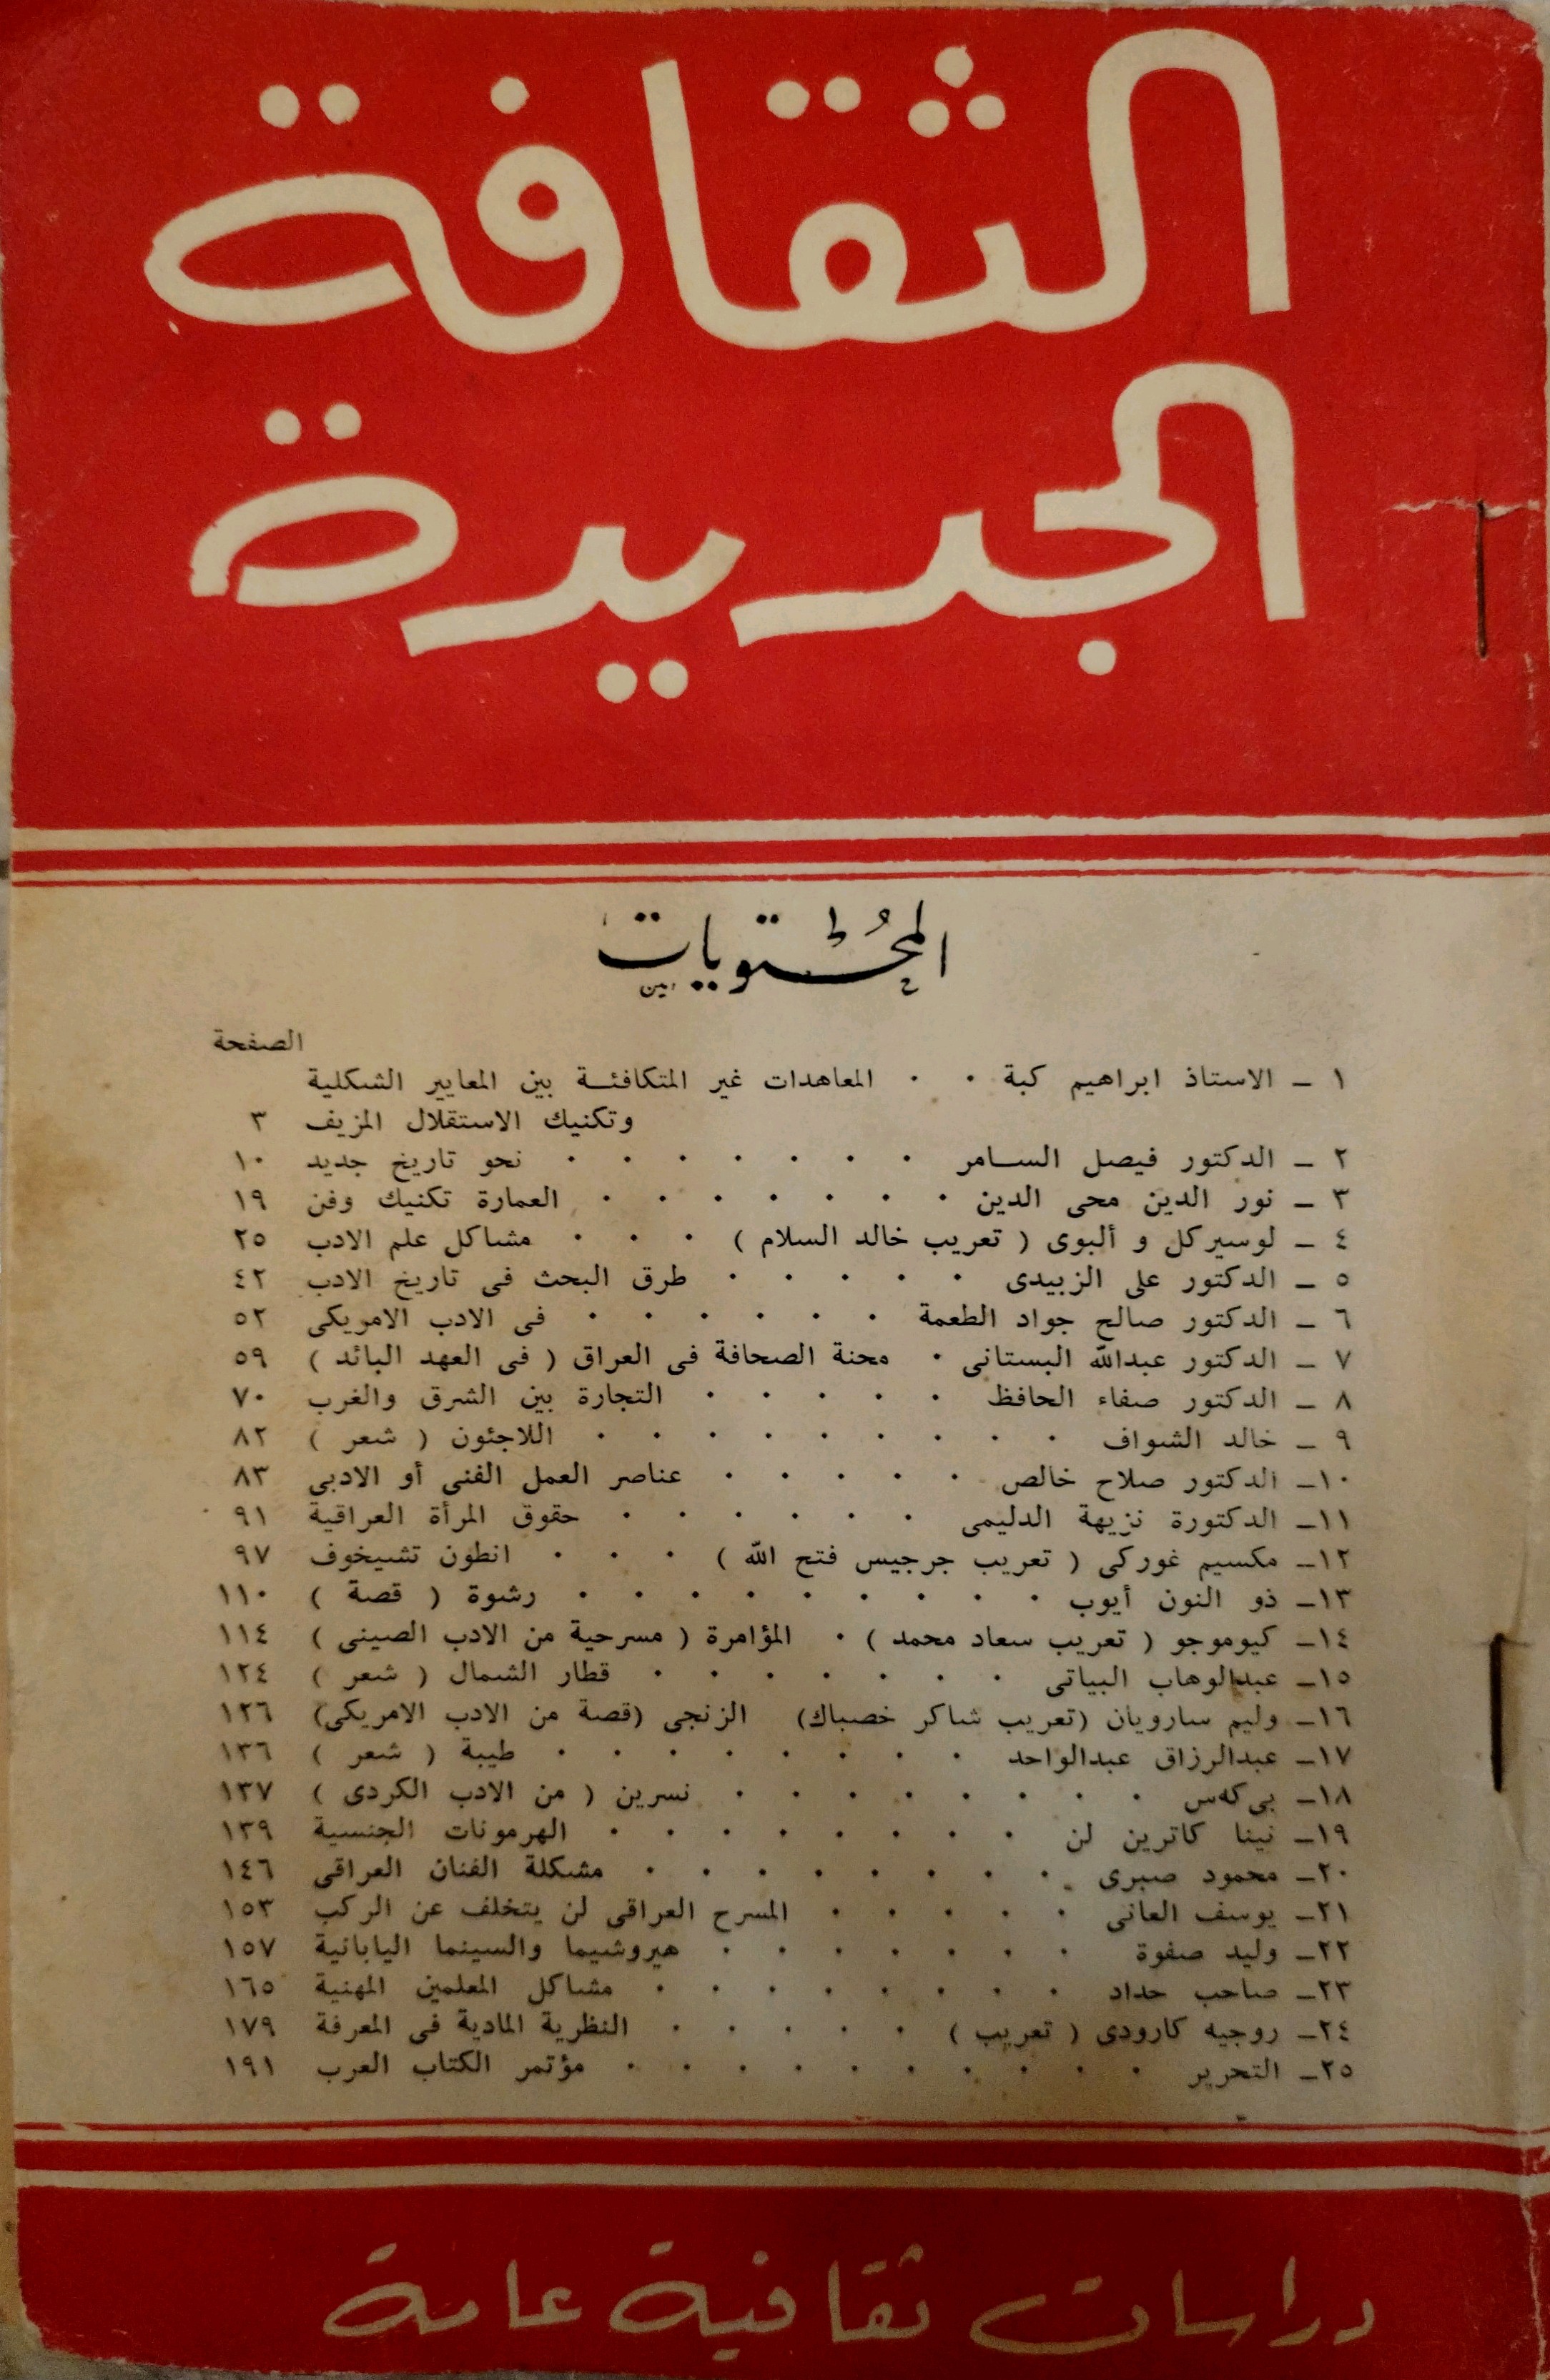 الثقافة
الجديدة
المحتويات
الصفحة
١ ــ الاستاذ ابراهيم كبة ٠ ٠ المعاهدات غير المتكافئة بين المعايير الشكلية
وتكنيك الاستقلال المزيف ٣
٢ ــ الدكتور فيصل السامر ٠ ٠ ٠ ٠ ٠ ٠ ٠ نحو تاريخ جديد ١٠
٣ ــ نور الدين محى الدين ٠ ٠ ٠ ٠ ٠ ٠ ٠ العمارة تكنيك وفن ١٩
٤ ــ لوسيركل و ألبوى ( تعريب خالد السلام ) ٠ ٠ ٠ مشاكل علم الادب ٢٥
٥ ــ الدكتور على الزبيدى ٠ ٠ ٠ ٠ ٠ طرق البحث فى تاريخ الادب ٤٢
٦ ــ الدكتور صالح جواد الطعمة ٠ ٠ ٠ ٠ ٠ ٠ فى الادب الامريكى ٥٢
٧ ــ الدكتور عبدالله البستانى ٠ محنة الصحافة فى العراق ( فى العهد البائد ) ٥٩
٨ ــ الدكتور صفاء الحافظ ٠ ٠ ٠ ٠ ٠ التجارة بين الشرق والغرب ٧٠
٩ ــ خالد الشواف ٠ ٠ ٠ ٠ ٠ ٠ ٠ ٠ ٠ اللاجئون ( شعر ) ٨٢
١٠ــ الدكتور صلاح خالص ٠ ٠ ٠ ٠ ٠ عناصر العمل الفنى أو الادبى ٨٣
١١ــ الدكتورة نزيهة الدليمى ٠ ٠ ٠ ٠ ٠ ٠ حقوق المرأة العراقية ٩١
١٢ــ مكسيم غوركى ( تعريب جرجيس فتح الله ) ٠ ٠ ٠ انطون تشيخوف ٩٧
١٣ــ ذو النون أيوب ٠ ٠ ٠ ٠ ٠ ٠ ٠ ٠ ٠ رشوة ( قصة ) ١١٠
١٤ــ كيوموجو ( تعريب سعاد محمد ) ٠ المؤامرة ( مسرحية من الادب الصينى ) ١١٤
١٥ــ عبدالوهاب البياتى ٠ ٠ ٠ ٠ ٠ ٠ ٠ قطار الشمال ( شعر ) ١٢٤
١٦ــ وليم سارويان (تعريب شاكر خصباك) الزنجى (قصة من الادب الامريكى) ١٢٦
١٧ــ عبدالرزاق عبدالواحد ٠ ٠ ٠ ٠ ٠ ٠ ٠ ٠ طيبة ( شعر ) ١٣٦
١٨ــ بى كەس ٠ ٠ ٠ ٠ ٠ ٠ ٠ ٠ نسرين ( من الادب الكردى ) ١٣٧
١٩ــ نينا كاترين لن ٠ ٠ ٠ ٠ ٠ ٠ ٠ ٠ الهرمونات الجنسية ١٣٩
٢٠ــ محمود صبرى ٠ ٠ ٠ ٠ ٠ ٠ ٠ ٠ مشكلة الفنان العراقى ١٤٦
٢١ــ يوسف العانى ٠ ٠ ٠ ٠ ٠ المسرح العراقى لن يتخلف عن الركب ١٥٣
٢٢ــ وليد صفوة ٠ ٠ ٠ ٠ ٠ ٠ ٠ هيروشيما والسينما اليابانية ١٥٧
٢٣ــ صاحب حداد ٠ ٠ ٠ ٠ ٠ ٠ ٠ ٠ مشاكل المعلمين المهنية ١٦٥
٢٤ــ روجيه كارودى ( تعريب ) ٠ ٠ ٠ ٠ ٠ النظرية المادية فى المعرفة ١٧٩
٢٥ــ التحرير ٠ ٠ ٠ ٠ ٠ ٠ ٠ ٠ ٠ ٠ مؤتمر الكتاب العرب ١٩١
دراسات ثقافية عامة